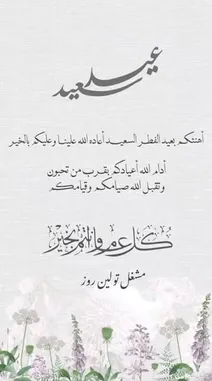 عيد سعيد
أهنئكم بعيد الفطر السعيد أعاده الله علينا وعليكم بالخير
أدام الله أعيادكم بقرب من تحبون
وتقبل الله صيامكم وقيامكم
كل عام وانتم بخير
مشغل تولين روز